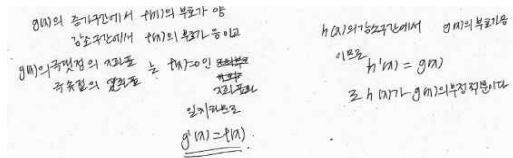 g(x)의 증가구간에서 f(x)의 부호가 양
감소구간에서 f(x)의 부호가 음이고
g(x)의 극댓점의 x좌표
극솟점의 x좌표는 f(x)=0인
x좌표와
일치하므로
g'(x)=f(x)
h(x)의 감소구간에서 g(x)의 부호가 음
이므로
h'(x)=g(x)
로 h(x)가 g(x)의 부정적분이다